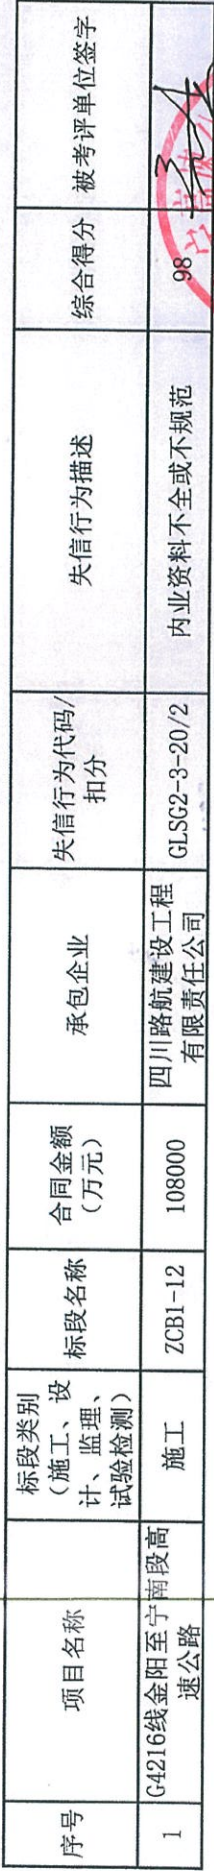 序号
项目名称
标段类别
（施工、设
计、监理、
试验检测）
标段名称
合同金额
（万元）
承包企业
失信行为代码/
扣分
失信行为描述
综合得分
被考评单位签字
1
G4216线金阳至宁南段高
速公路
施工
ZCB1-12
108000
四川路航建设工程
有限责任公司
GLSG2-3-20/2
内业资料不全或不规范
98